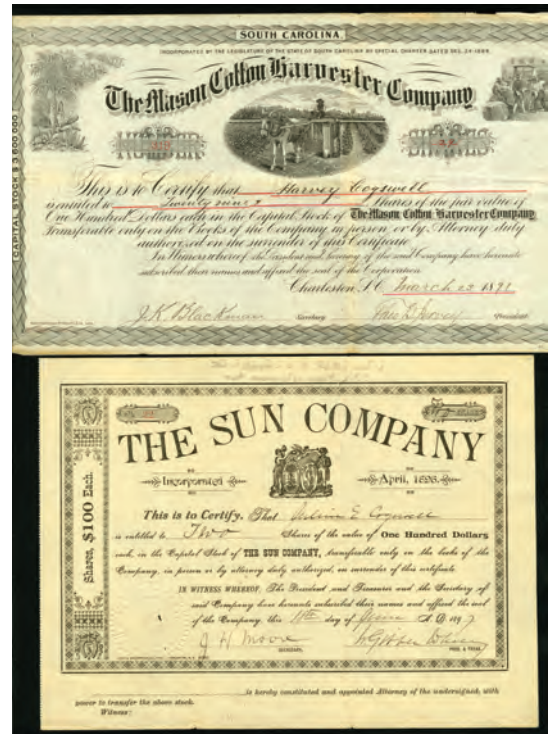 SOUTH CAROLINA
INCORPORATED BY THE LEGISLATURE OF THE STATE OF SOUTH CAROLINA BY SPECIAL CHARTER DATED DEC. 24 1889.
The Mason Cotton Harvester Company
NUMBER SHARES
CAPITAL STOCK $3,600,000
This is to Certify that Harvey Cogswell
is entitled to Twenty nine Shares of the par value of
One Hundred Dollars each in the Capital Stock of The Mason Cotton Harvester Company
Transferable only on the Books of the Company in person or by Attorney duly
authorized on the surrender of this Certificate
In Witness whereof the President and Secretary of the said Company have hereunto
subscribed their names and affixed the seal of the Corporation
Charleston, S.C. March 1891
J.K. Blackman Secretary President
THE SUN COMPANY
Incorporated April,
Shares, $100 Each.
This is to Certify, That E Cogswell
is entitled to Two Shares of the value of One Hundred Dollars
each, in the Capital Stock of THE SUN COMPANY, transferable only on the books of the
Company, in person or by attorney duly authorized, on surrender of this certificate
IN WITNESS WHEREOF, The President and Treasurer and the Secretary of
said Company have hereunto subscribed their names and affixed the seal
of the Company, this 11th day of June A.D. 1897
J H Moore
SECRETARY. PRES. & TREAS.
is hereby constituted and appointed Attorney of the undersigned, with
power to transfer the above stock.
Witness: